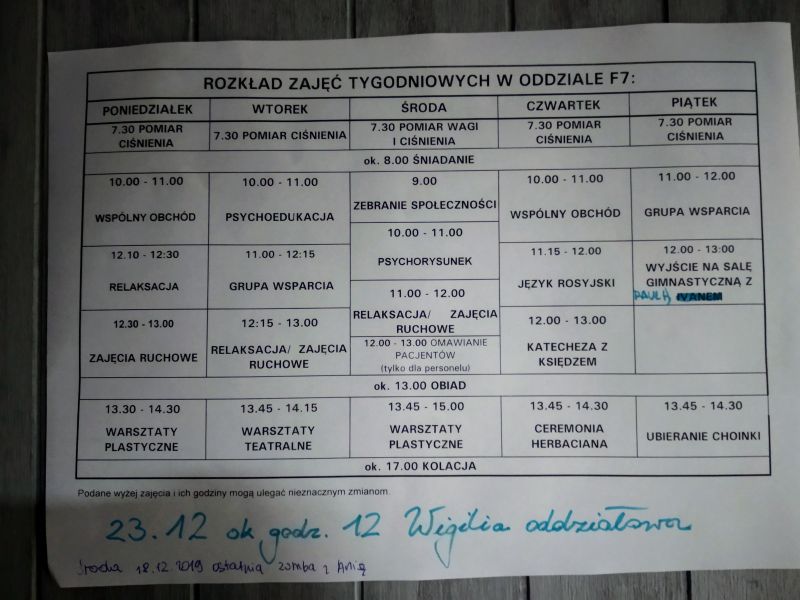 ROZKŁAD ZAJĘĆ TYGODNIOWYCH W ODDZIALE F7:
PONIEDZIAŁEK WTOREK ŚRODA CZWARTEK PIĄTEK
7.30 POMIAR CIŚNIENIA
7.30 POMIAR CIŚNIENIA
7.30 POMIAR WAGI I CIŚNIENIA
7.30 POMIAR CIŚNIENIA
7.30 POMIAR CIŚNIENIA
ok. 8.00 ŚNIADANIE
10.00 - 11.00
WSPÓLNY OBCHÓD
10.00 - 11.00
PSYCHOEDUKACJA
9.00
ZEBRANIE SPOŁECZNOŚCI
10.00 - 11.00
WSPÓLNY OBCHÓD
11.00 - 12.00
GRUPA WSPARCIA
12.10 - 12:30
RELAKSACJA
11.00 - 12:15
GRUPA WSPARCIA
10.00 - 11.00
PSYCHORYSUNEK
11.15 - 12.00
JĘZYK ROSYJSKI
12.00 - 13:00
WYJŚCIE NA SALĘ
GIMNASTYCZNĄ Z
IVANEM
12.30 - 13.00
ZAJĘCIA RUCHOWE
12:15 - 13.00
RELAKSACJA/ ZAJĘCIA
RUCHOWE
11.00 - 12.00
RELAKSACJA/ ZAJĘCIA
RUCHOWE
12.00 - 13.00 OMAWIANIE
PACJENTÓW
(tylko dla personelu)
12.00 - 13.00
KATECHEZA Z
KSIĘDZEM
ok. 13.00 OBIAD
13.30 - 14.30
WARSZTATY
PLASTYCZNE
13.45 - 14.15
WARSZTATY
TEATRALNE
13.45 - 15.00
WARSZTATY
PLASTYCZNE
13.45 - 14.30
CEREMONIA
HERBACIANA
13.45 - 14.30
UBIERANIE CHOINKI
ok. 17.00 KOLACJA
Podane wyżej zajęcia i ich godziny mogą ulegać nieznacznym zmianom.
23.12 ok godz. 12 Wigilia oddziałowa
Środa 18.12.2019 ostatnia zumba z Anią